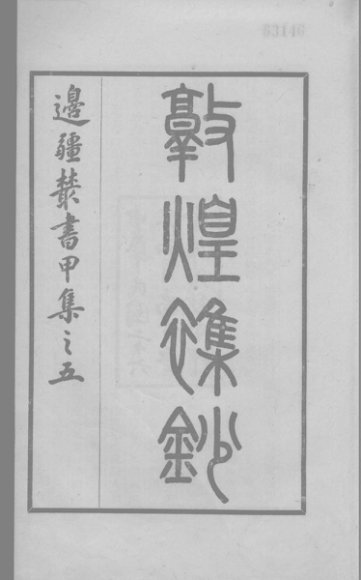 63146
敦煌雜鈔
邊疆叢書甲集之五